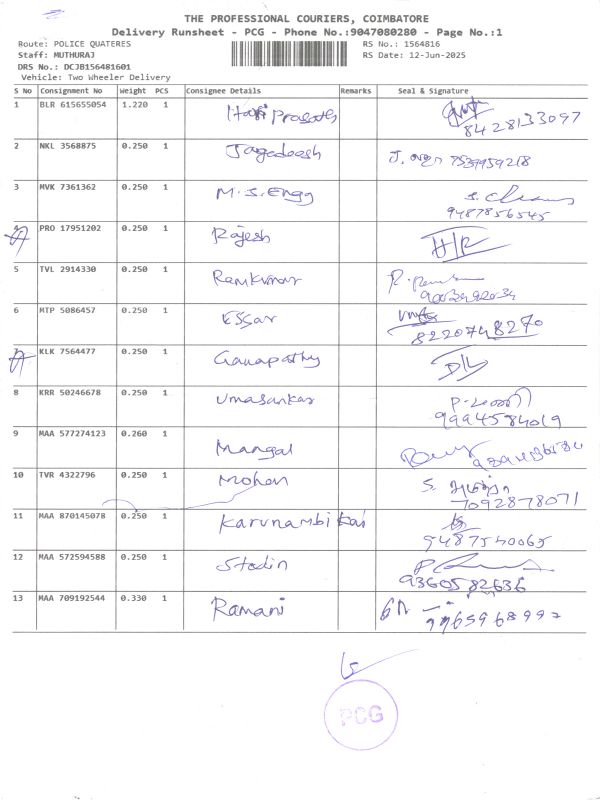 THE PROFESSIONAL COURIERS, COIMBATORE
Delivery Runsheet - PCG - Phone No.:9047080280 - Page No.:1
Route: POLICE QUATERES RS No.: 1564816
Staff: MUTHURAJ RS Date: 12-Jun-2025
DRS No.: DCJB156481601
Vehicle: Two Wheeler Delivery
S No Consignment No Weight PCS Consignee Details Remarks Seal & Signature
1 BLR 615655054 1.220 1 Hari Prasath
8428133097
2 NKL 3568875 0.250 1 Jagadeesh J. 7539959218
3 MVK 7361362 0.250 1 M.S.Engg
9487856545
4 PRO 17951202 0.250 1 Rajesh H/R
5 TVL 2914330 0.250 1 Ramkumar
9003492034
6 MTP 5086457 0.250 1 Essar
8220748270
7 KLK 7564477 0.250 1 Ganapathy D/L
8 KRR 50246678 0.250 1 Umasankar
9994584019
9 MAA 577274123 0.260 1 Mangal
10 TVR 4322796 0.250 1 Mohan
7092878071
11 MAA 870145078 0.250 1 Karunambikai
9487540065
12 MAA 572594588 0.250 1 Stalin
9360582636
13 MAA 709192544 0.330 1 Ramani
9965968992
PCG